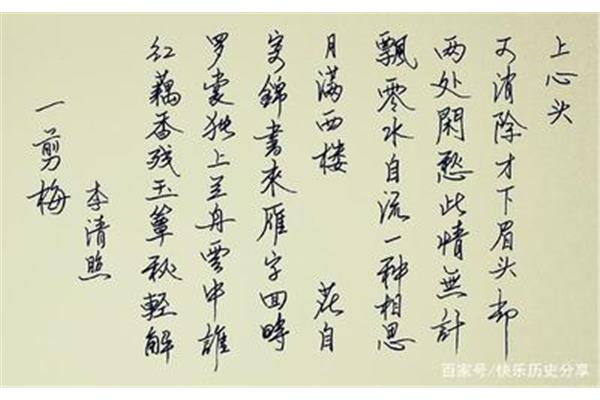 一剪梅
李清照
红藕香残玉簟秋輕解
罗裳独上兰舟雲中誰
寄錦書來雁字回時
月满西楼 花自
飄零水自流一种相思
两处閑愁此情無計
可消除才下眉头却
上心头
百家号/快乐历史分享